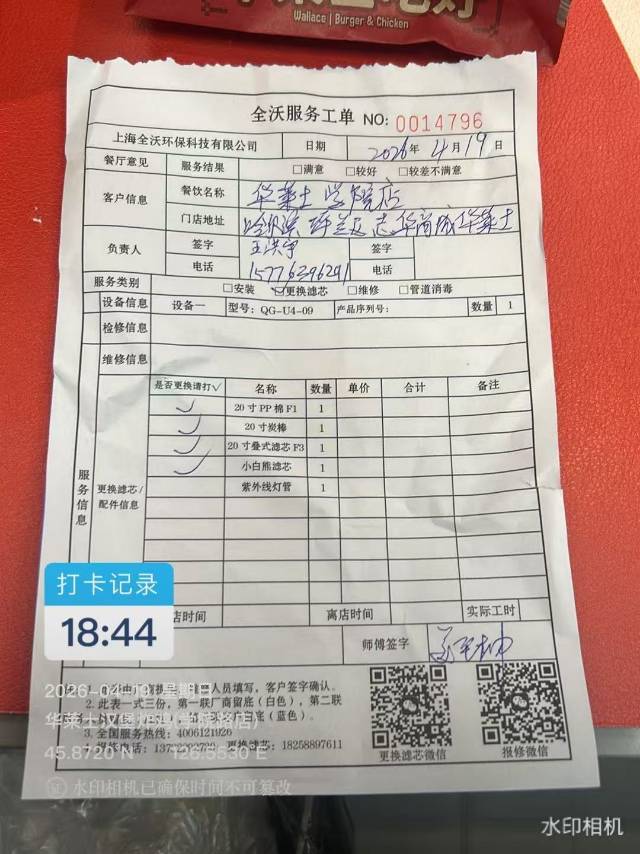 Wallace | Burger & Chicken
全沃服务工单 NO: 0014796
上海全沃环保科技有限公司 日期 2026年4月19日
餐厅意见 服务结果 □满意 □较好 □较差不满意
客户信息 餐饮名称 华莱士 学院店
门店地址 哈尔滨 呼兰区 志华商城华莱士
负责人 签字 王洪宇 签字
电话 15776396291 电话
服务类别 □安装 ☑更换滤芯 □维修 □管道消毒
设备信息 设备一 型号: QG-U4-09 产品序列号: 数量 1
检修信息
维修信息
服务信息 更换滤芯/配件信息
是否更换请打√ 名称 数量 单价 合计 备注
✓ 20寸PP棉F1 1
✓ 20寸炭棒 1
✓ 20寸叠式滤芯F3 1
✓ 小白熊滤芯 1
紫外线灯管 1
店时间 离店时间 实际工时
师傅签字
打卡记录
18:44
人员填写，客户签字确认。
2. 此表一式三份，第一联厂商留底（白色），第二联
留底（蓝色）。
3. 全国服务热线: 4006121926
更换滤芯: 18258897611
更换滤芯微信 报修微信
45.8720 N 126.5530 E
水印相机已确保时间不可篡改
水印相机